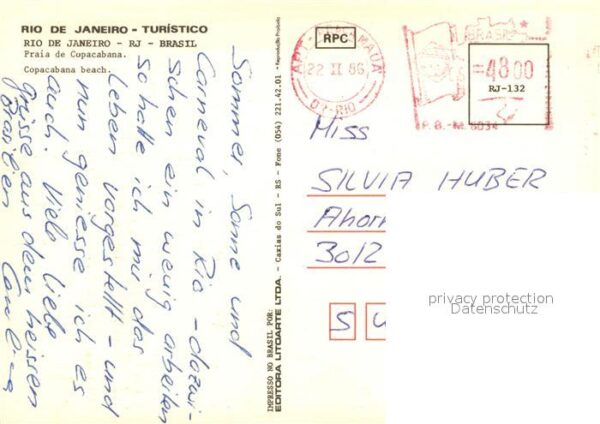 RIO DE JANEIRO - TURÍSTICO
RIO DE JANEIRO - RJ - BRASIL
Praia de Copacabana.
Copacabana beach.
Sommer, Sonne und
Carneval in Rio - dazwi-
schen ein wenig arbeiten
so hatte ich mir das
Leben vorgestellt - und
nun geniesse ich es
auch. Viele liebe
Grüsse aus dem heissen
Brasilien
IMPRESSO NO BRASIL POR:
EDITORA LITOARTE LTDA. - Caxias do Sul - RS - Fone (054) 221.42.01 - Reprodução Proibida
RPC
MAUÁ
22 II 86
07-RIO
BRASIL
=4800
RJ-132
P.B.-M. 6034
Miss
SILVIA HUBER
Ahorn
3012
S U
privacy protection
Datenschutz